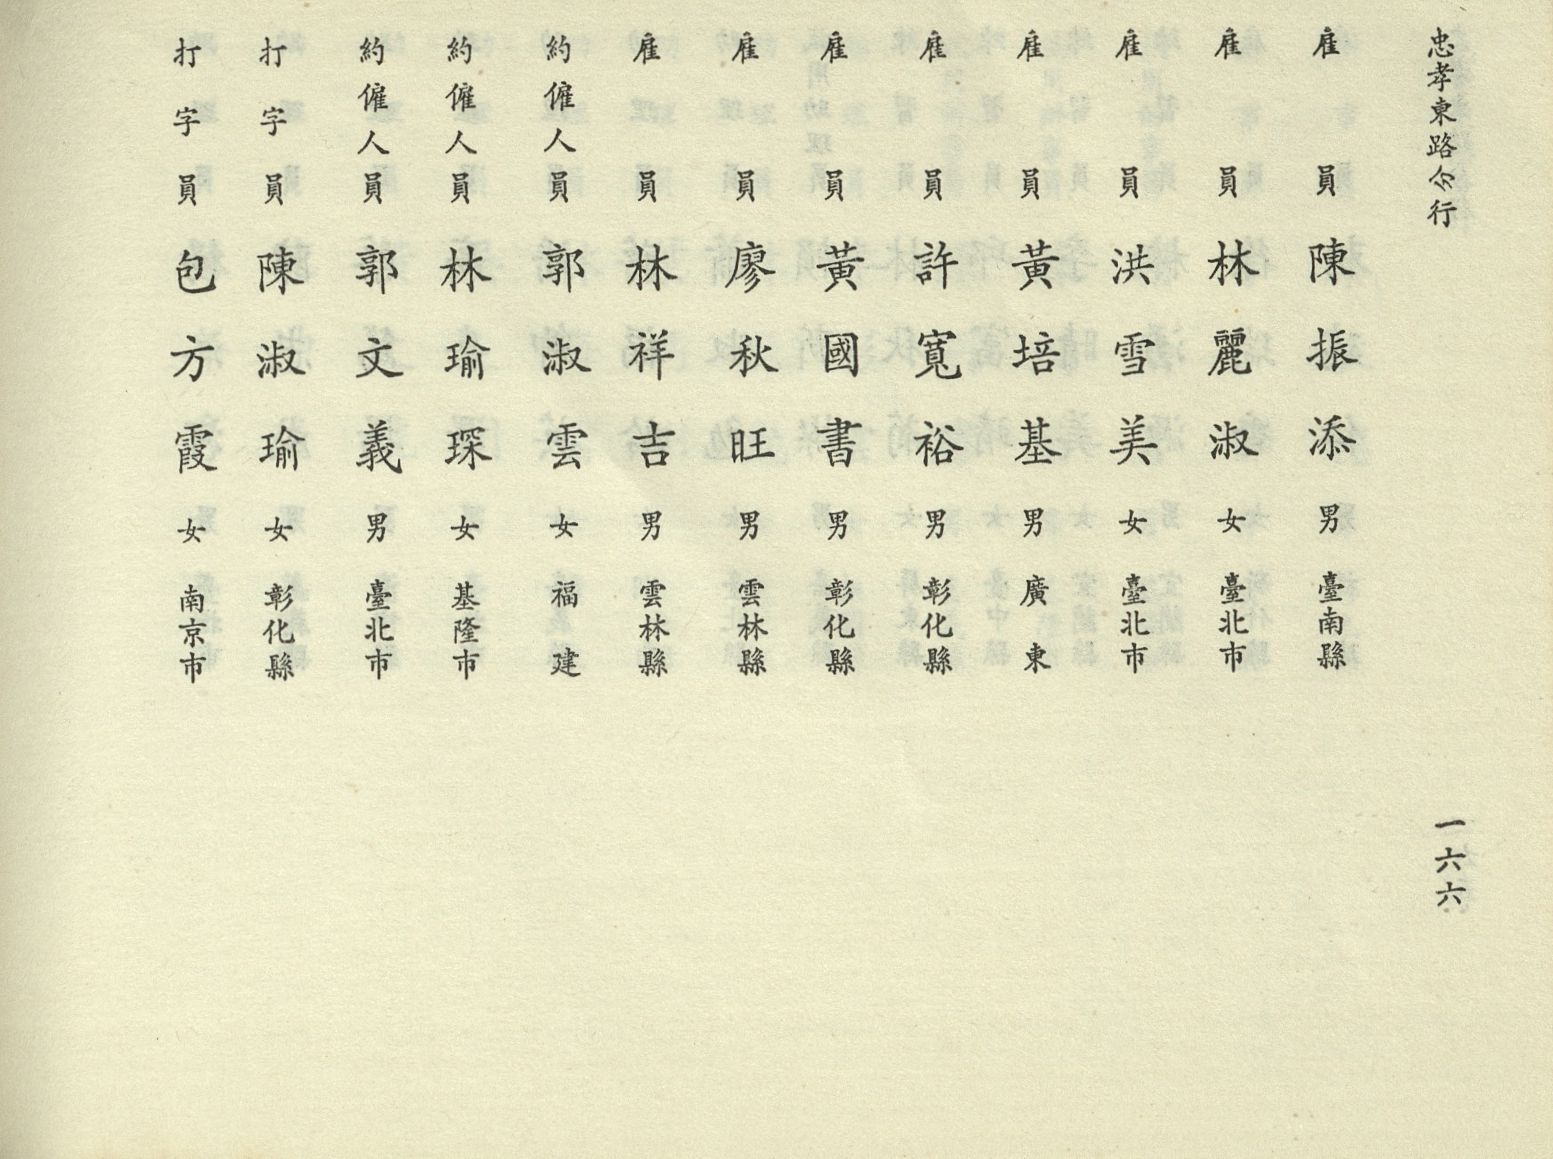 忠孝東路分行
雇員 陳振添 男 臺南縣
雇員 林麗淑 女 臺北市
雇員 洪雪美 女 臺北市
雇員 黃培基 男 廣東
雇員 許寬裕 男 彰化縣
雇員 黃國書 男 彰化縣
雇員 廖秋旺 男 雲林縣
雇員 林祥吉 男 雲林縣
約僱人員 郭淑雲 女 福建
約僱人員 林瑜琛 女 基隆市
約僱人員 郭文義 男 臺北市
打字員 陳淑瑜 女 彰化縣
打字員 包方霞 女 南京市
一六六